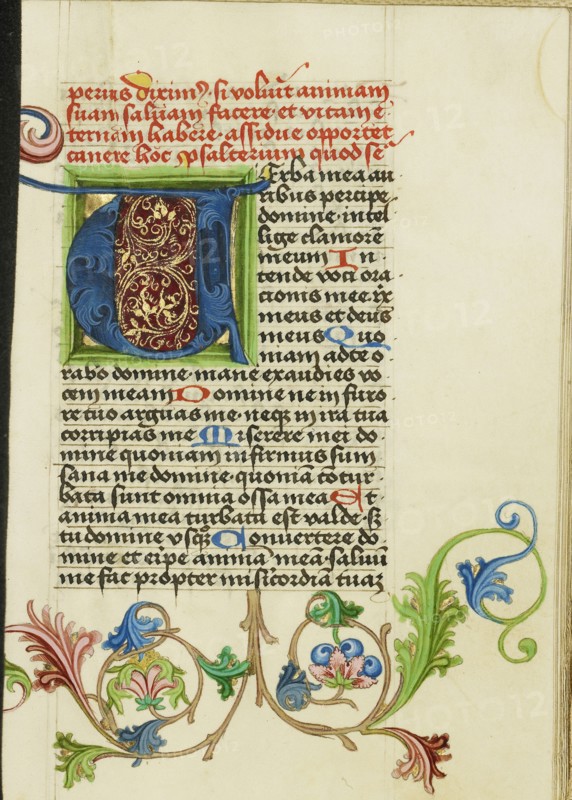 perius dixim⁹. si volu͛it animam
suam saluam facere. et vitam e
ternam habere. assidue opportet
canere hoc psalterium quod se͛
VErba mea au
ribus percipe
domine. intel
lige clamorē
meum In
tende voci ora
cionis mee. rex
meus et deus
meus Quo
niam ad te o
rabo domine. mane exaudies vo
cem meam Domine ne in furo
re tuo arguas me. neqꝫ in ira tua
corripias me Miserere mei do
mine quoniam infirmus sum
sana me domine. quoniā cōtur
bata sunt omnia ossa mea Et
anima mea turbata est valde. sꝫ
tu domine vsqꝫ Conuertere do
mine et eripe animā meā. saluū
me fac propter misericordiā tuaꝫ